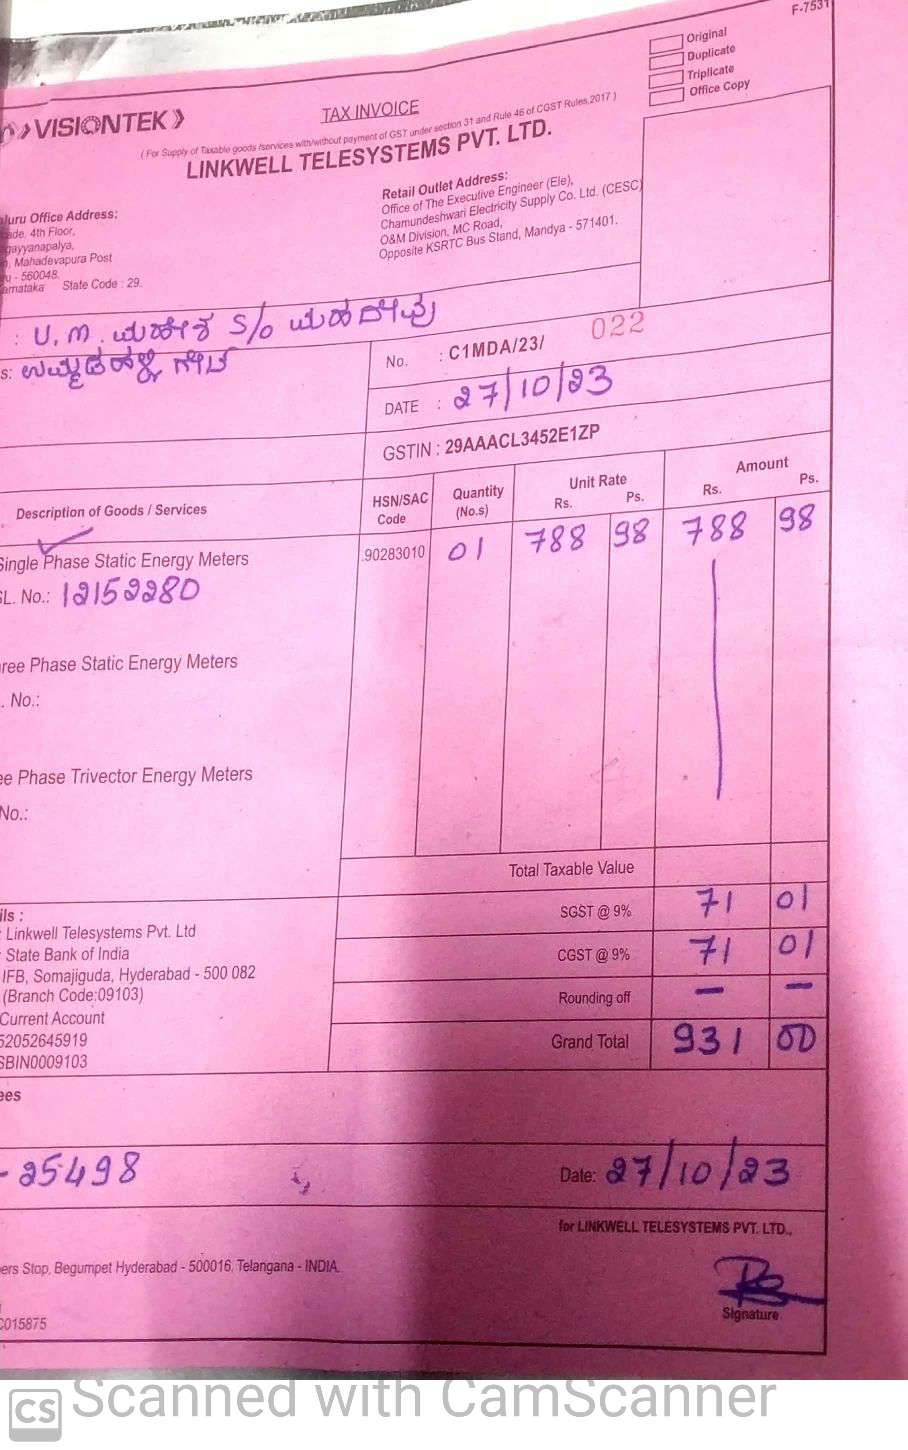 F-7531
Original
Duplicate
Triplicate
Office Copy
VISIONTEK
TAX INVOICE
( For Supply of Taxable goods /services with/without payment of GST under section 31 and Rule 46 of CGST Rules,2017 )
LINKWELL TELESYSTEMS PVT. LTD.
Office Address:
4th Floor,
Mahadevapura Post
- 560048.
State Code : 29.
Retail Outlet Address:
Office of The Executive Engineer (Ele),
Chamundeshwari Electricity Supply Co. Ltd. (CESC)
O&M Division, MC Road,
Opposite KSRTC Bus Stand, Mandya - 571401.
: U.M. ಮಹೇಶ S/o ಮಹದೇವು
ಉಮ್ಮಡಹಳ್ಳಿ ಗೇಟ್
No. : C1MDA/23/ 022
DATE : 27/10/23
GSTIN : 29AAACL3452E1ZP
Description of Goods / Services HSN/SAC Code Quantity (No.s) Unit Rate Rs. Ps. Amount Rs. Ps.
Single Phase Static Energy Meters 90283010 01 788 98 788 98
SL. No.: 12152280
ree Phase Static Energy Meters
. No.:
ee Phase Trivector Energy Meters
No.:
Total Taxable Value
SGST @ 9% 71 01
CGST @ 9% 71 01
Rounding off — —
Grand Total 931 00
ils :
: Linkwell Telesystems Pvt. Ltd
: State Bank of India
IFB, Somajiguda, Hyderabad - 500 082
(Branch Code:09103)
Current Account
52052645919
SBIN0009103
ees
- 25498
Date: 27/10/23
for LINKWELL TELESYSTEMS PVT. LTD.,
ers Stop, Begumpet Hyderabad - 500016, Telangana - INDIA.
Signature
C015875
CS Scanned with CamScanner